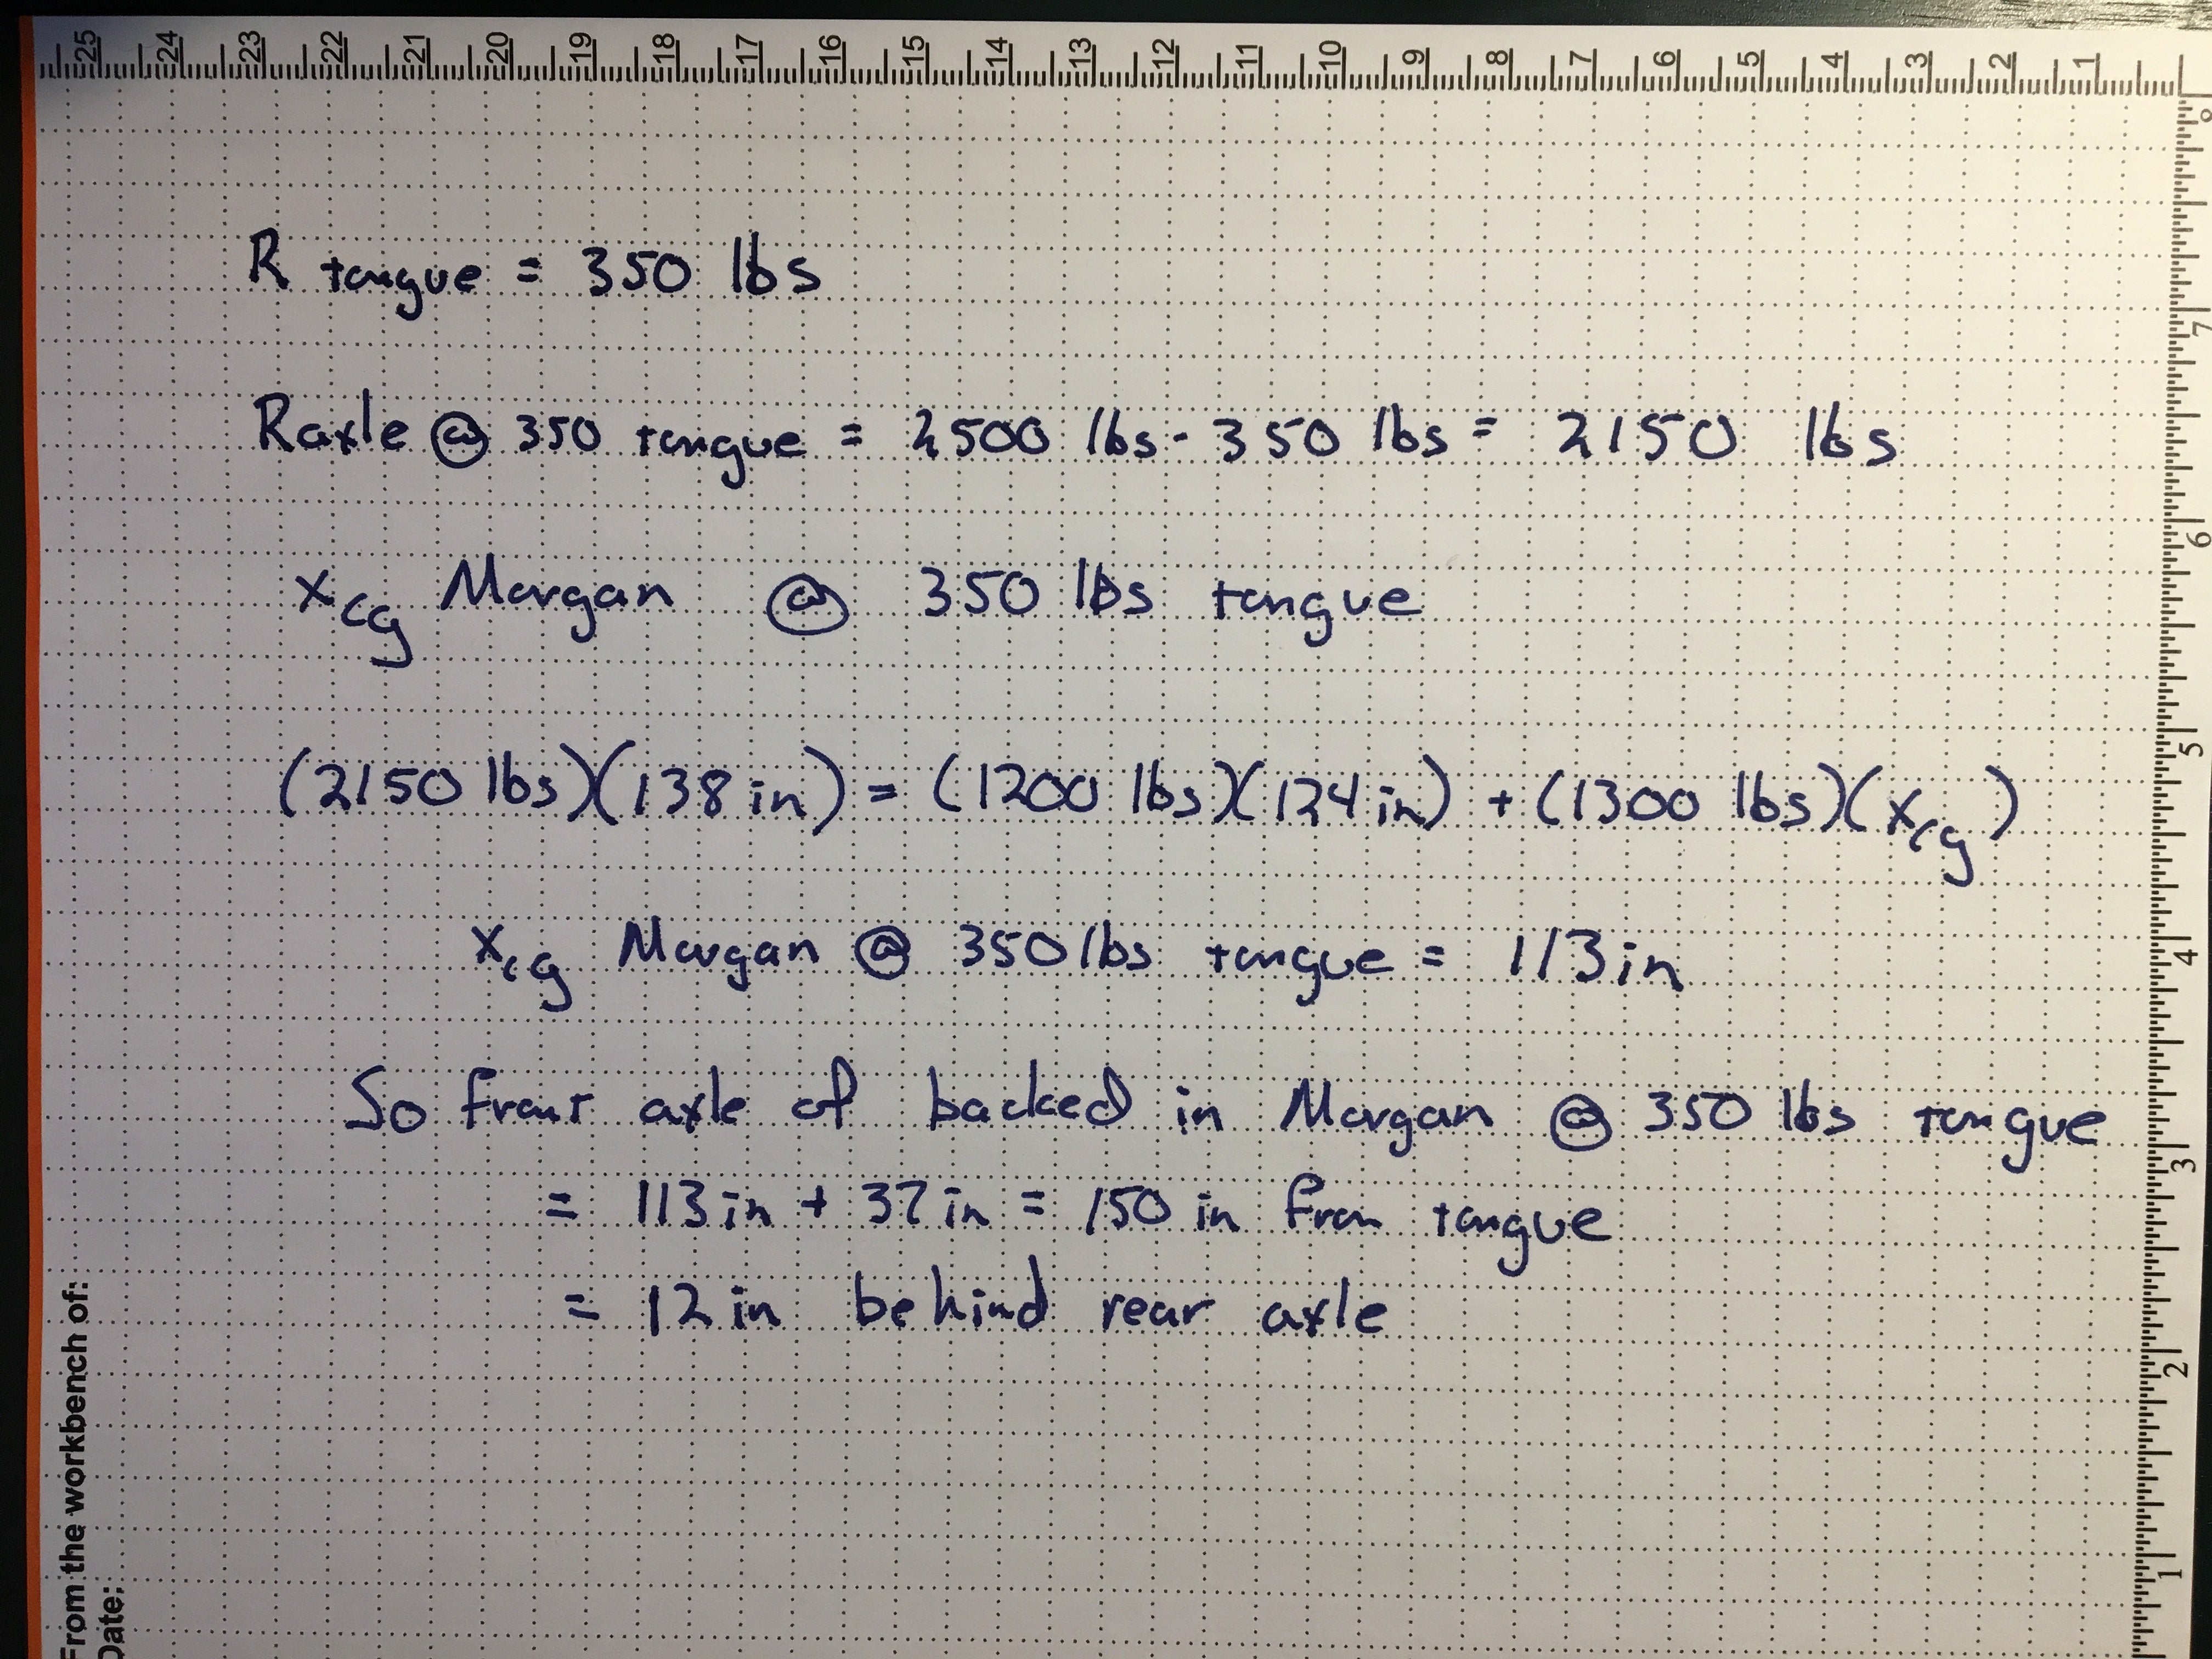 25 24 23 22 21 20 19 18 17 16 15 14 13 12 11 10 9 8 7 6 5 4 3 2 1
8 7 6 5 4 3 2 1
R tongue = 350 lbs
Raxle @ 350 tongue = 2500 lbs - 350 lbs = 2150 lbs
xcg Morgan @ 350 lbs tongue
(2150 lbs)(138 in) = (1200 lbs)(124 in) + (1300 lbs)(xcg)
xcg Morgan @ 350 lbs tongue = 113 in
So front axle of backed in Morgan @ 350 lbs tongue
= 113 in + 37 in = 150 in from tongue
= 12 in behind rear axle
From the workbench of:
Date: